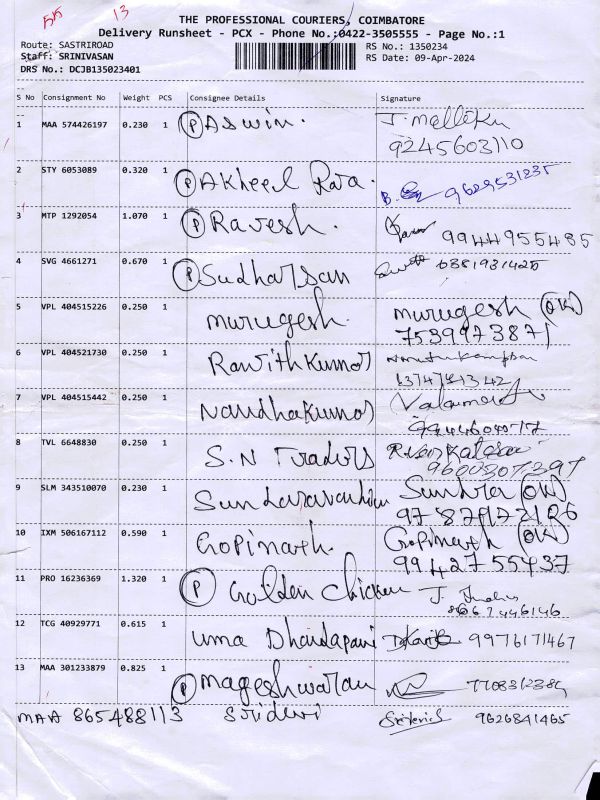 13
THE PROFESSIONAL COURIERS, COIMBATORE
Delivery Runsheet - PCX - Phone No.:0422-3505555 - Page No.:1
Route: SASTRIROAD
RS No.: 1350234
Staff: SRINIVASAN
RS Date: 09-Apr-2024
DRS No.: DCJB135023401
S No Consignment No Weight PCS Consignee Details Signature
1 MAA 574426197 0.230 1 (P) Aswin. J. mallika
9245603110
2 STY 6053089 0.320 1 (P) Akheel Raja. B.
3 MTP 1292054 1.070 1 (P) Ravesh.
9944955485
4 SVG 4661271 0.670 1 (P) Sudharsan
5 VPL 404515226 0.250 1 murugesh. murugesh (OK)
7539973871
6 VPL 404521730 0.250 1 RanjithKumar
7 VPL 404515442 0.250 1 Nandhakumar
8 TVL 6648830 0.250 1 S.N Traders
9600307397
9 SLM 343510070 0.230 1 Sundaravadhan (OK)
10 IXM 506167112 0.590 1 Gopinath. Gopinath (OK)
9942755437
11 PRO 16236369 1.320 1 (P) Golden chicken J.
12 TCG 40929771 0.615 1 uma Dhandapani 9976171467
13 MAA 301233879 0.825 1 (P) mageshwaran
MAA 865488113 Sridevi Sridevi 9626841465